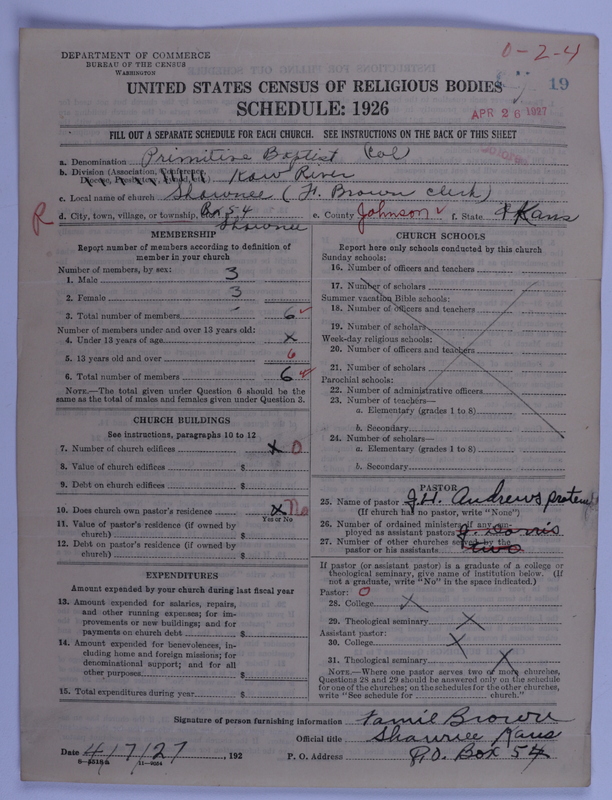 DEPARTMENT OF COMMERCE
BUREAU OF THE CENSUS
WASHINGTON
0-2-4
19
UNITED STATES CENSUS OF RELIGIOUS BODIES
SCHEDULE: 1926
APR 26 1927
FILL OUT A SEPARATE SCHEDULE FOR EACH CHURCH. SEE INSTRUCTIONS ON THE BACK OF THIS SHEET
a. Denomination Primitive Baptist Col
b. Division (Association, Conference,
Diocese, Presbytery, Kaw River
c. Local name of church Shawnee (F. Brown clerk)
R d. City, town, village, or township, Box 54 e. County Johnson f. State Kans
Shawnee
MEMBERSHIP
Report number of members according to definition of
member in your church
Number of members, by sex:
1. Male 3
2. Female 3
3. Total number of members 6
Number of members under and over 13 years old:
4. Under 13 years of age x
5. 13 years old and over 6
6. Total number of members 6
NOTE.—The total given under Question 6 should be the
same as the total of males and females given under Question 3.
CHURCH BUILDINGS
See instructions, paragraphs 10 to 12
7. Number of church edifices x 0
8. Value of church edifices $
9. Debt on church edifices $
10. Does church own pastor's residence x No
Yes or No
11. Value of pastor's residence (if owned by
church) $
12. Debt on pastor's residence (if owned by
church) $
EXPENDITURES
Amount expended by your church during last fiscal year
13. Amount expended for salaries, repairs,
and other running expenses; for im-
provements or new buildings; and for
payments on church debt $
14. Amount expended for benevolences, in-
cluding home and foreign missions; for
denominational support; and for all
other purposes $
15. Total expenditures during year $
CHURCH SCHOOLS
Report here only schools conducted by this church
Sunday schools:
16. Number of officers and teachers
17. Number of scholars
Summer vacation Bible schools:
18. Number of officers and teachers
19. Number of scholars
Week-day religious schools:
20. Number of officers and teachers
21. Number of scholars
Parochial schools:
22. Number of administrative officers
23. Number of teachers—
a. Elementary (grades 1 to 8)
b. Secondary
24. Number of scholars—
a. Elementary (grades 1 to 8)
b. Secondary
PASTOR
25. Name of pastor J. H. Andrews protem
(If church has no pastor, write "None")
26. Number of ordained ministers if any em-
ployed as assistant pastors J. Dorris
27. Number of other churches served by the
pastor or his assistants two
If pastor (or assistant pastor) is a graduate of a college or
theological seminary, give name of institution below. (If
not a graduate, write "No" in the space indicated.)
Pastor: 0
28. College x
29. Theological seminary x
Assistant pastor:
30. College x
31. Theological seminary x
NOTE.—Where one pastor serves two or more churches,
Questions 28 and 29 should be answered only on the schedule
for one of the churches; on the schedules for the other churches,
write "See schedule for church."
Signature of person furnishing information Famie Brown
Official title Shawnee Kans
Date 4/7/27, 192 P. O. Address P.O. Box 54
8-5318a 11-9224